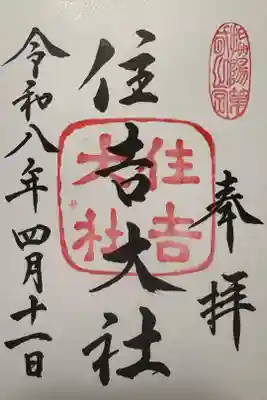 奉拝
住吉大社
住吉
大社
令和八年四月十一日